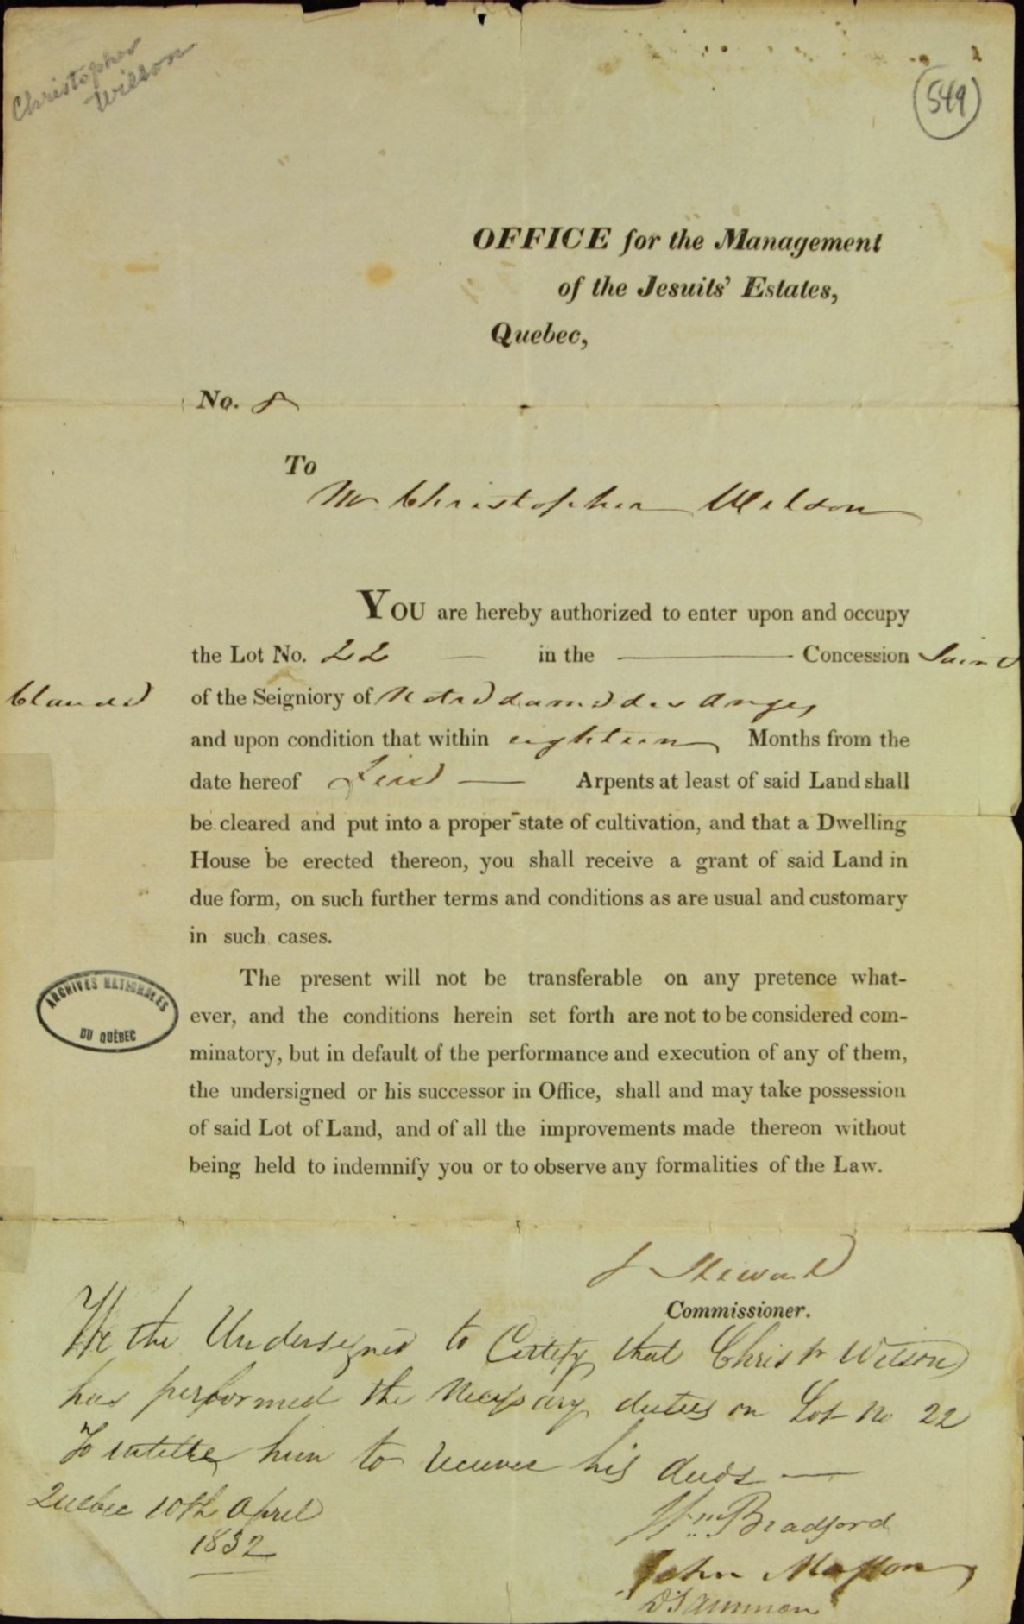 Christopher
Wilson
549
OFFICE for the Management
of the Jesuits' Estates,
Quebec,
No. 8
To
Mr Christopher Wilson
YOU are hereby authorized to enter upon and occupy
the Lot No. 22 — in the — Concession Saint
Claude of the Seigniory of Notre dame des Anges
and upon condition that within eighteen Months from the
date hereof — Arpents at least of said Land shall
be cleared and put into a proper state of cultivation, and that a Dwelling
House be erected thereon, you shall receive a grant of said Land in
due form, on such further terms and conditions as are usual and customary
in such cases.
The present will not be transferable on any pretence what-
ever, and the conditions herein set forth are not to be considered com-
minatory, but in default of the performance and execution of any of them,
the undersigned or his successor in Office, shall and may take possession
of said Lot of Land, and of all the improvements made thereon without
being held to indemnify you or to observe any formalities of the Law.
ARCHIVES NATIONALES
DU QUÉBEC
J Stewart
Commissioner.
We the Undersigned to Certify that Christr Wilson
has performed the Necessary duties on Lot No 22
To entitle him to receive his deeds —
Quebec 10th April
1832
Wm Bradford
John